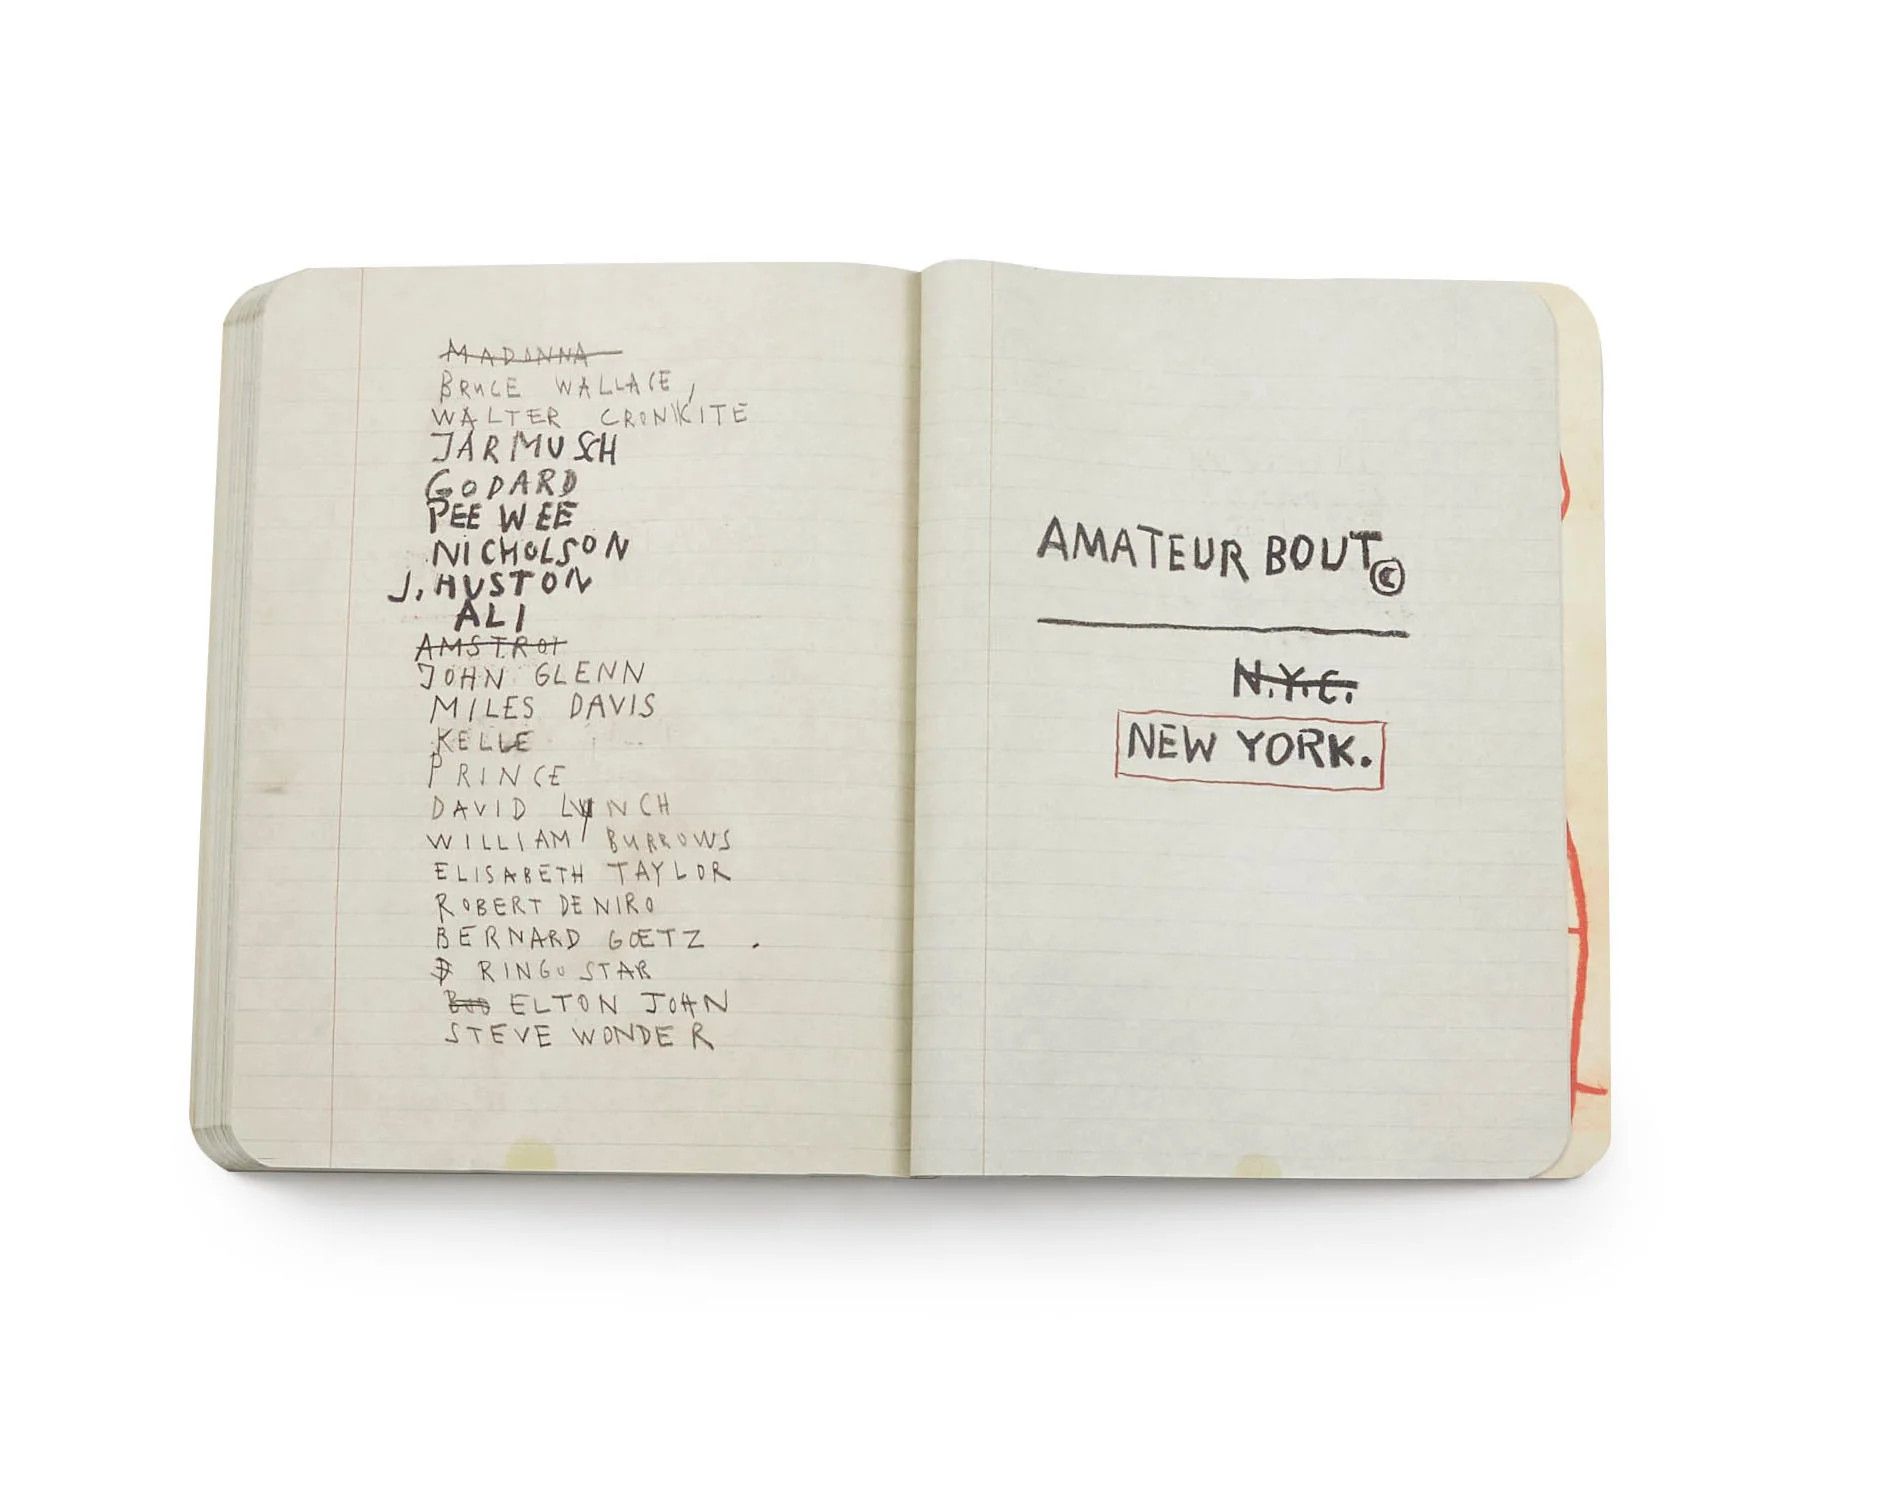 MADONNA
BRUCE WALLACE,
WALTER CRONKITE
JARMUSCH
GODARD
PEE WEE
NICHOLSON
J. HUSTON
ALI
AMSTROI
JOHN GLENN
MILES DAVIS
KELLE
PRINCE
DAVID LYNCH
WILLIAM BURROWS
ELISABETH TAYLOR
ROBERT DE NIRO
BERNARD GOETZ .
RINGO STAR
ELTON JOHN
STEVE WONDER
AMATEUR BOUT©
N.Y.C.
NEW YORK.